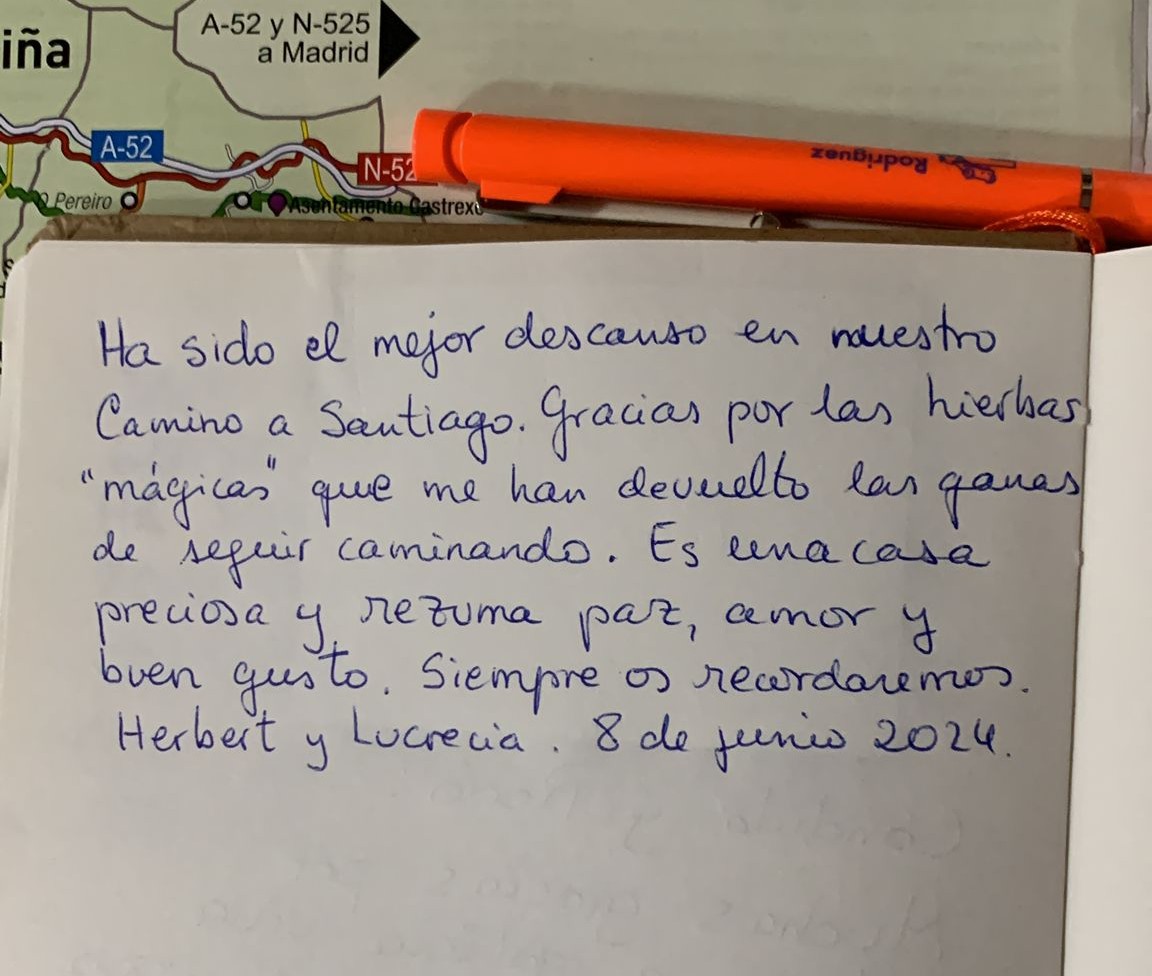 iña
A-52 y N-525
a Madrid
A-52
N-52
Pereiro
Asentamento Castrexo
Rodríguez
Ha sido el mejor descanso en nuestro
Camino a Santiago. Gracias por las hierbas
"mágicas" que me han devuelto las ganas
de seguir caminando. Es una casa
preciosa y rezuma paz, amor y
buen gusto. Siempre os recordaremos.
Herbert y Lucrecia. 8 de junio 2024.